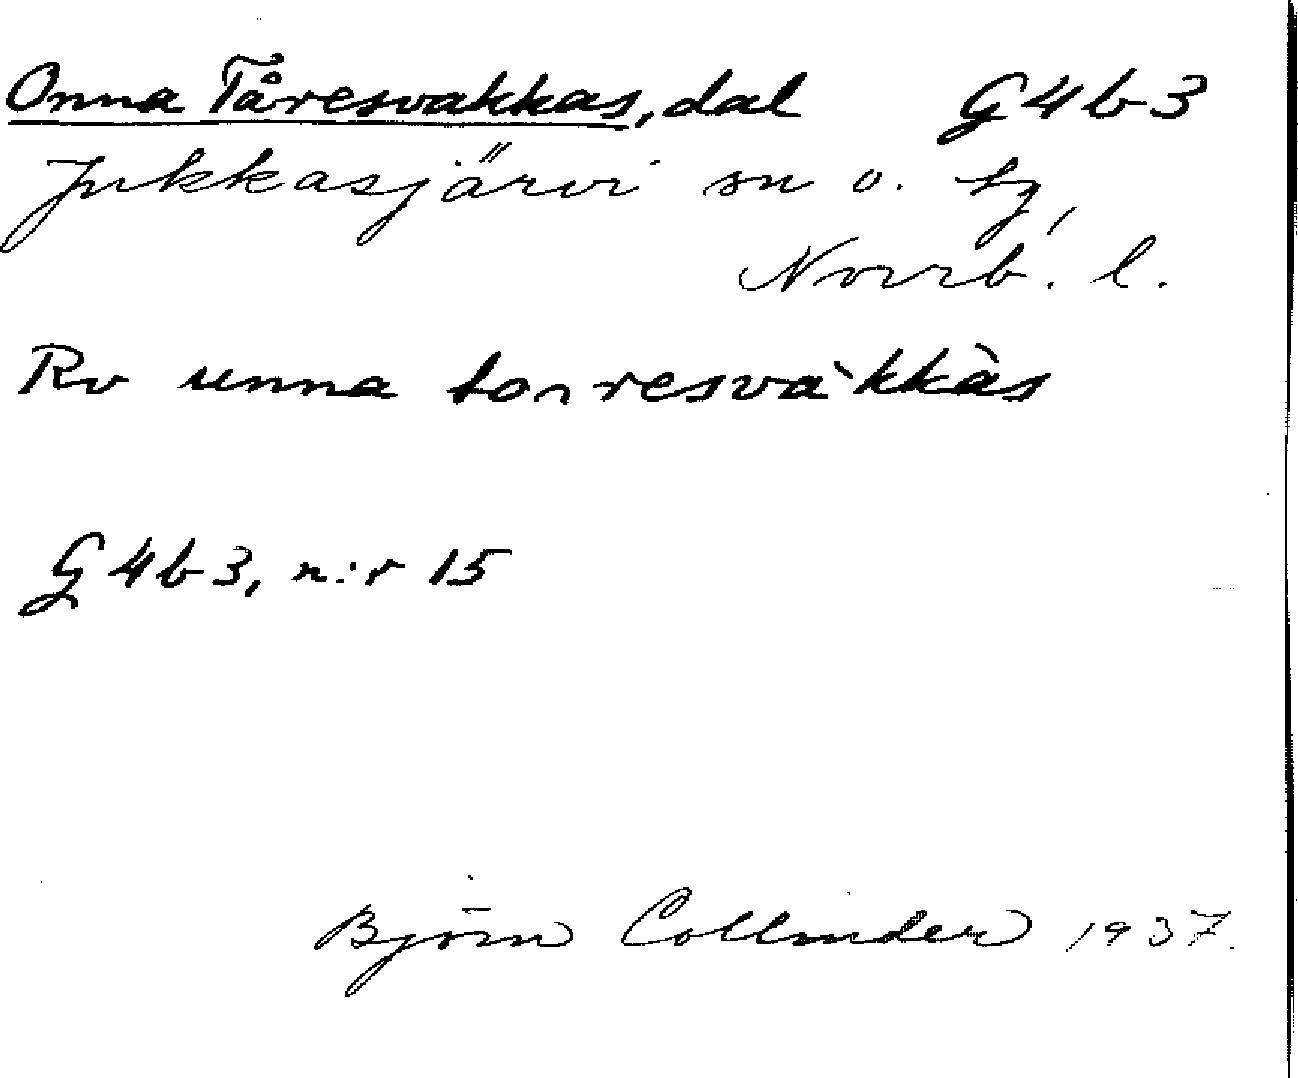 Onna Tåresvakkas, dal G4b3
Jukkasjärvi sn o. tg,
Norrb. l.
Rv unna to⌢resvàkkàs
G4b3, n:r 15
Björn Collinder 1937.